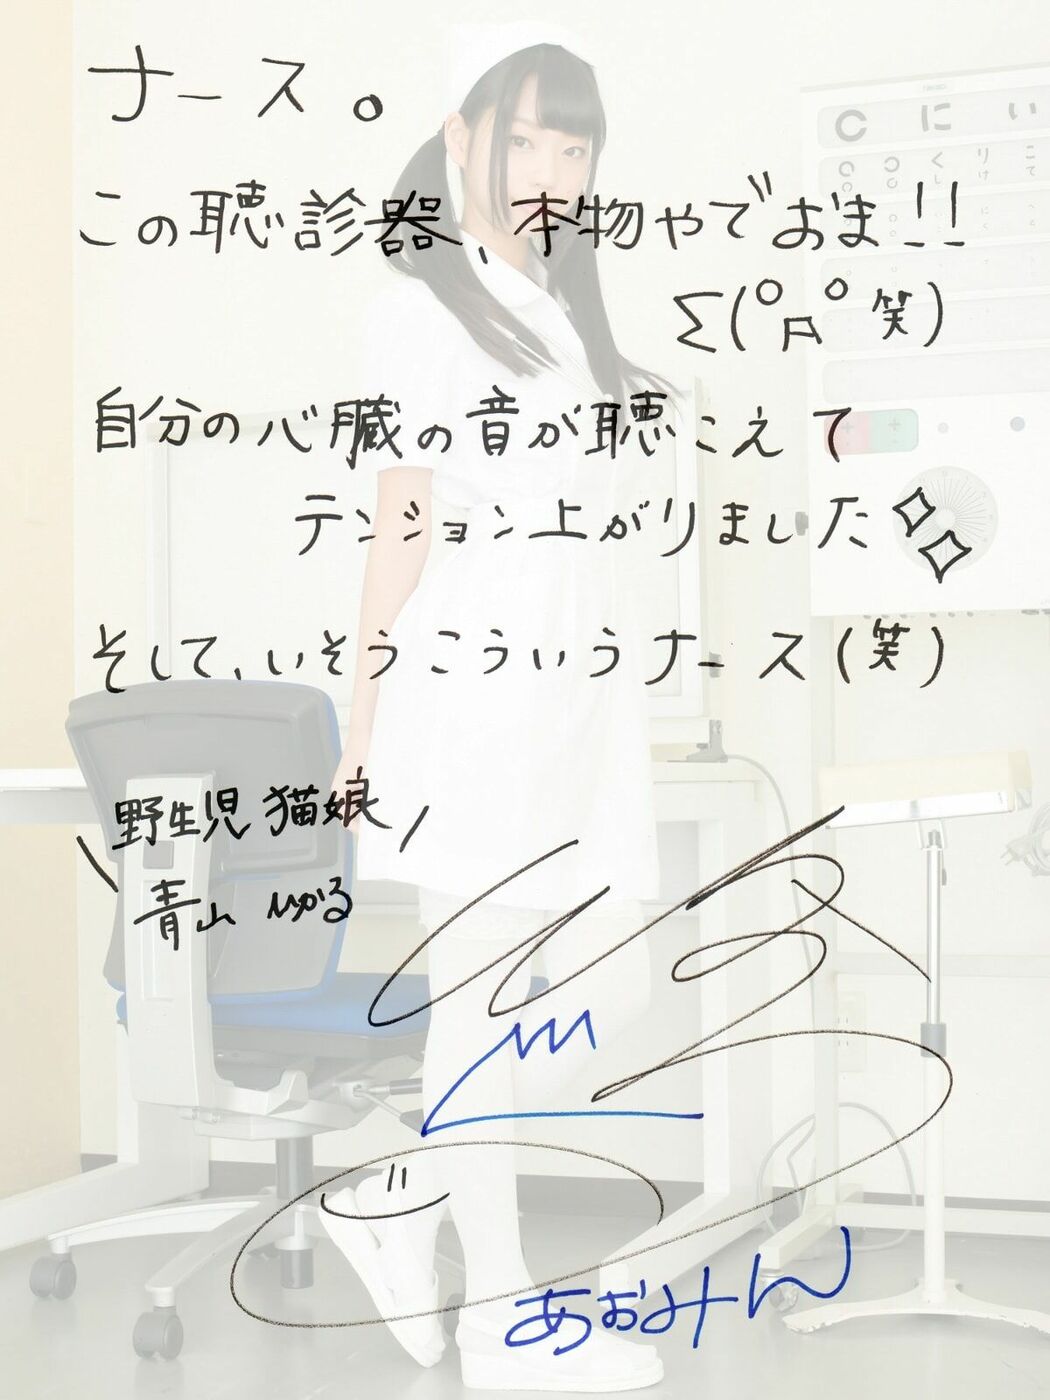 ナース。
この聴診器、本物やでおま!!
Σ(゚Д゚笑)
自分の心臓の音が聴こえて
テンション上がりました
そして、いそうこういうナース(笑)
\野生児 猫娘/
青山 ひかる
あおみん
C に い
く り こ
し け て